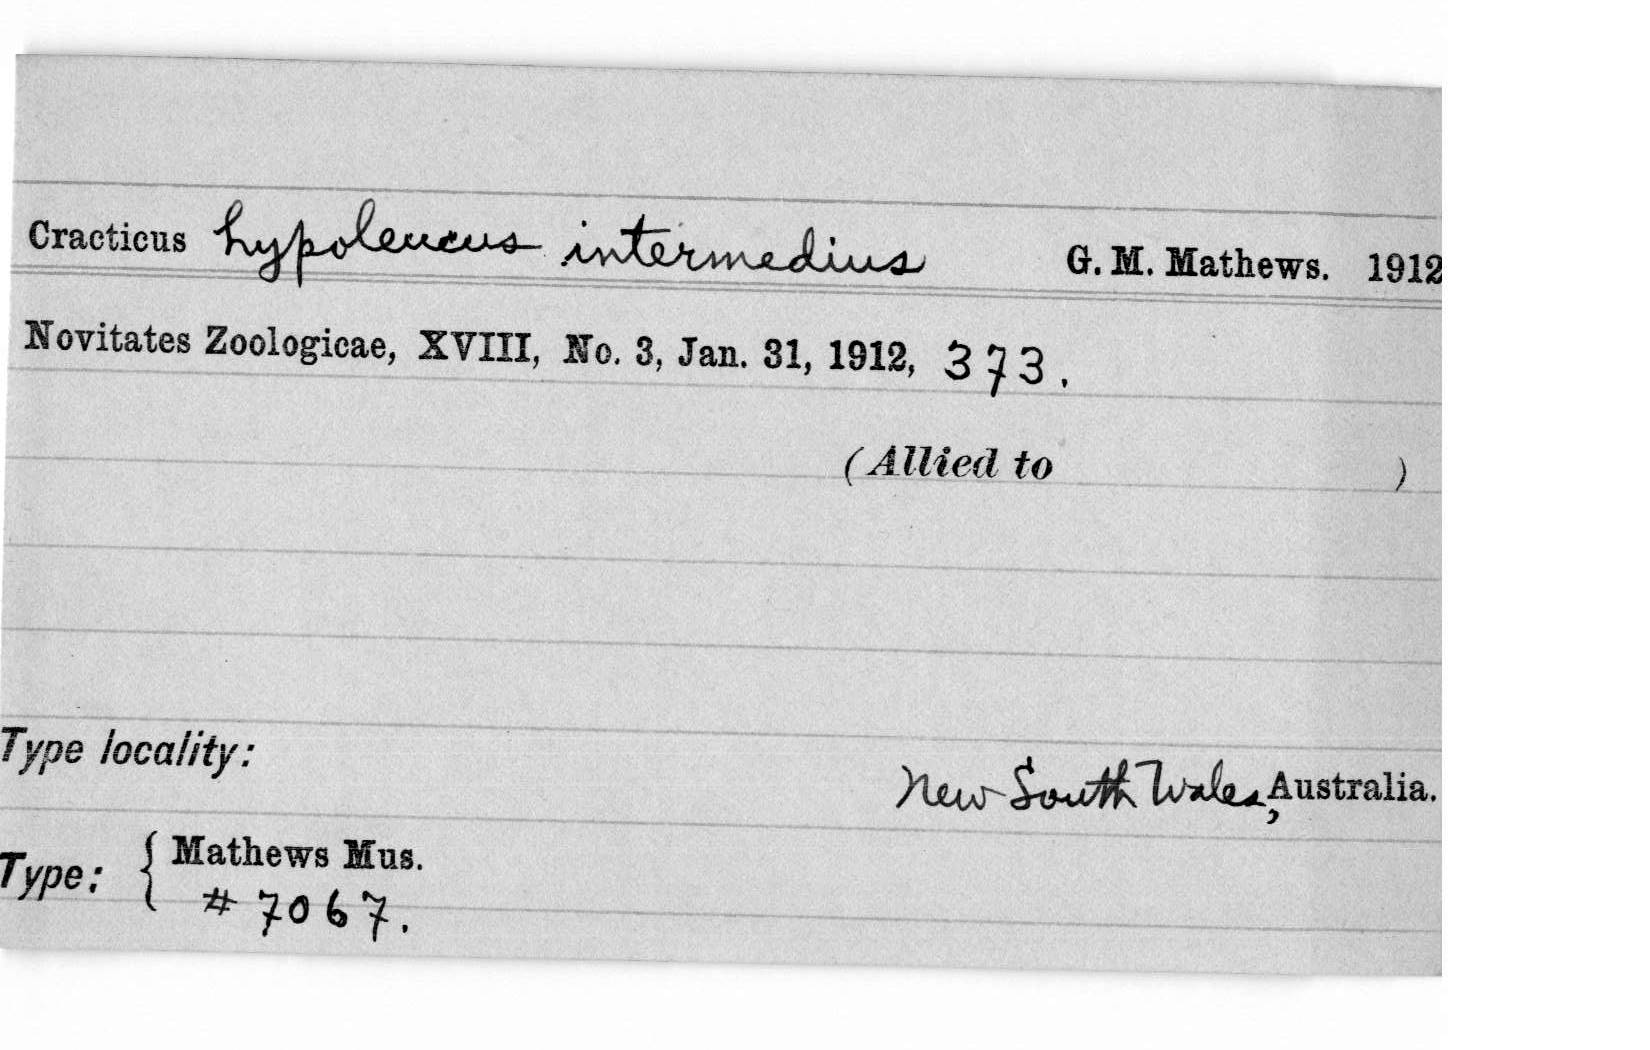 Cracticus hypoleucus intermedius G. M. Mathews. 1912
Novitates Zoologicae, XVIII, No. 3, Jan. 31, 1912, 373.
(Allied to )
Type locality:
New South Wales, Australia.
Type: { Mathews Mus.
# 7067.